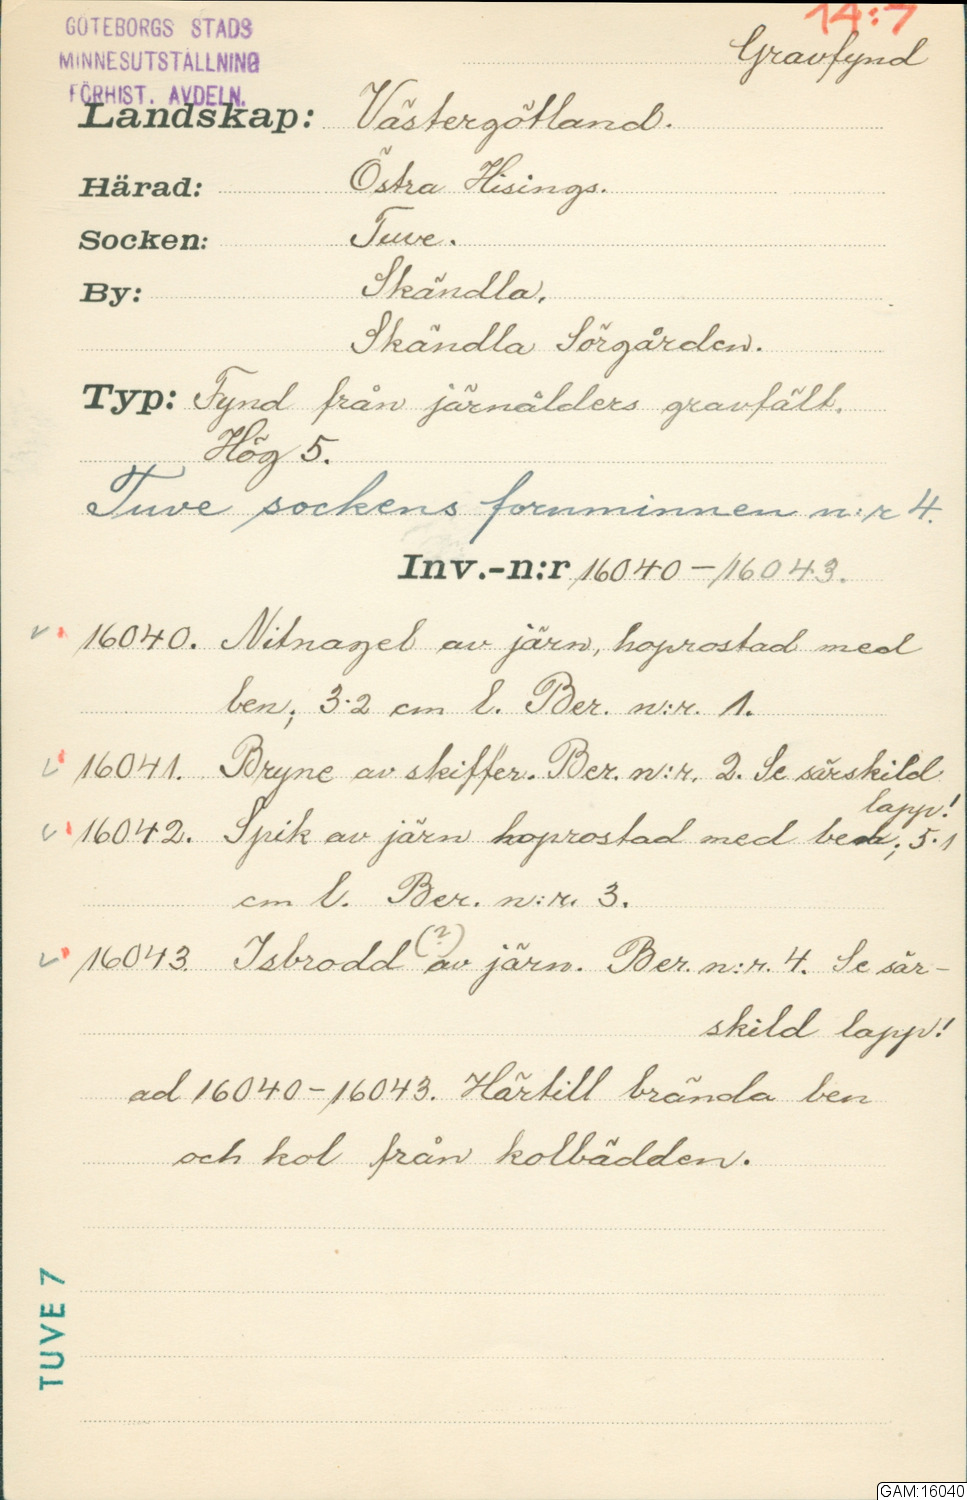 14:7
GÖTEBORGS STADS
MINNESUTSTÄLLNING
FÖRHIST. AVDELN.
Gravfynd
Landskap: Västergötland.
Härad: Östra Hisings.
Socken: Tuve.
By: Skändla.
Skändla Sörgården.
Typ: Fynd från järnålders gravfält.
Hög 5.
Tuve sockens fornminnen n:r 4.
Inv.-n:r 16040-16043.
16040. Nitnagel av järn, hoprostad med
ben; 3·2 cm l. Ber. n:r. 1.
16041. Bryne av skiffer. Ber. n:r. 2. Se särskild
lapp!
16042. Spik av järn hoprostad med ben; 5·1
cm l. Ber. n:r. 3.
16043 Isbrodd (?) av järn. Ber. n:r. 4. Se sär-
skild lapp!
ad 16040-16043. Härtill brända ben
och kol från kolbädden.
TUVE 7
GAM:16040